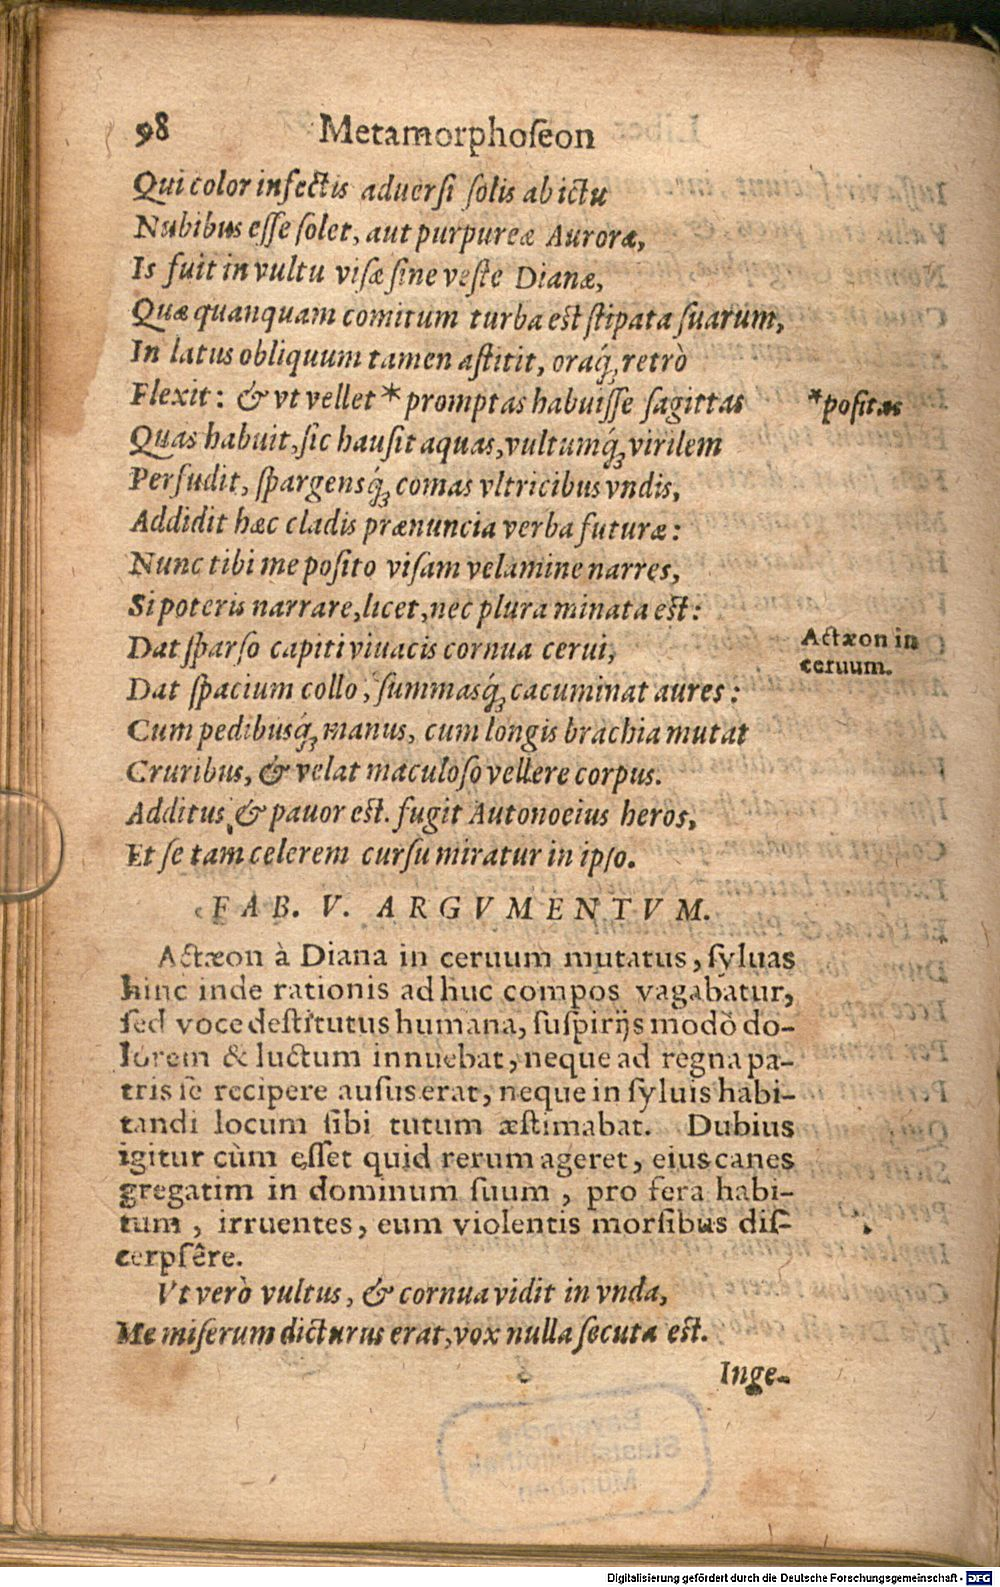 98 Metamorphoſeon
Qui color infectis aduerſi ſolis ab ictu
Nubibus eſſe ſolet, aut purpureæ Auroræ,
Is fuit in vultu viſæ ſine veſte Dianæ,
Quæ quanquam comitum turba est ſtipata ſuarum,
In latus obliquum tamen aſtitit, oraq́ꝫ retrò
Flexit: & vt vellet * promptas habuiſſe ſagittas *poſitas
Quas habuit, ſic hauſit aquas, vultumq́ꝫ virilem
Perfudit, ſpargensq́ꝫ comas vltricibus vndis,
Addidit hæc cladis prænuncia verba futuræ:
Nunc tibi me poſito viſam velamine narres,
Si poteris narrare, licet, nec plura minata est:
Dat ſparſo capiti viuacis cornua cerui,
Actæon in
ceruum.
Dat ſpacium collo, ſummasq́ꝫ cacuminat aures:
Cum pedibusq́ꝫ manus, cum longis brachia mutat
Cruribus, & velat maculoſo vellere corpus.
Additus & pauor est. fugit Autonoeius heros,
Et ſe tam celerem curſu miratur in ipſo.
FAB. V. ARGVMENTVM.
Actæon à Diana in ceruum mutatus, ſyluas
hinc inde rationis adhuc compos vagabatur,
ſed voce deſtitutus humana, ſuſpirijs modò do-
lorem & luctum innuebat, neque ad regna pa-
tris ſe recipere auſus erat, neque in ſyluis habi-
tandi locum ſibi tutum æſtimabat. Dubius
igitur cùm eſſet quid rerum ageret, eius canes
gregatim in dominum ſuum, pro fera habi-
tum, irruentes, eum violentis morſibus diſ-
cerpſêre.
Vt verò vultus, & cornua vidit in vnda,
Me miſerum dicturus erat, vox nulla ſecuta est.
Inge-
Bayerische
Staatsbibliothek
München
Digitalisierung gefördert durch die Deutsche Forschungsgemeinschaft - DFG